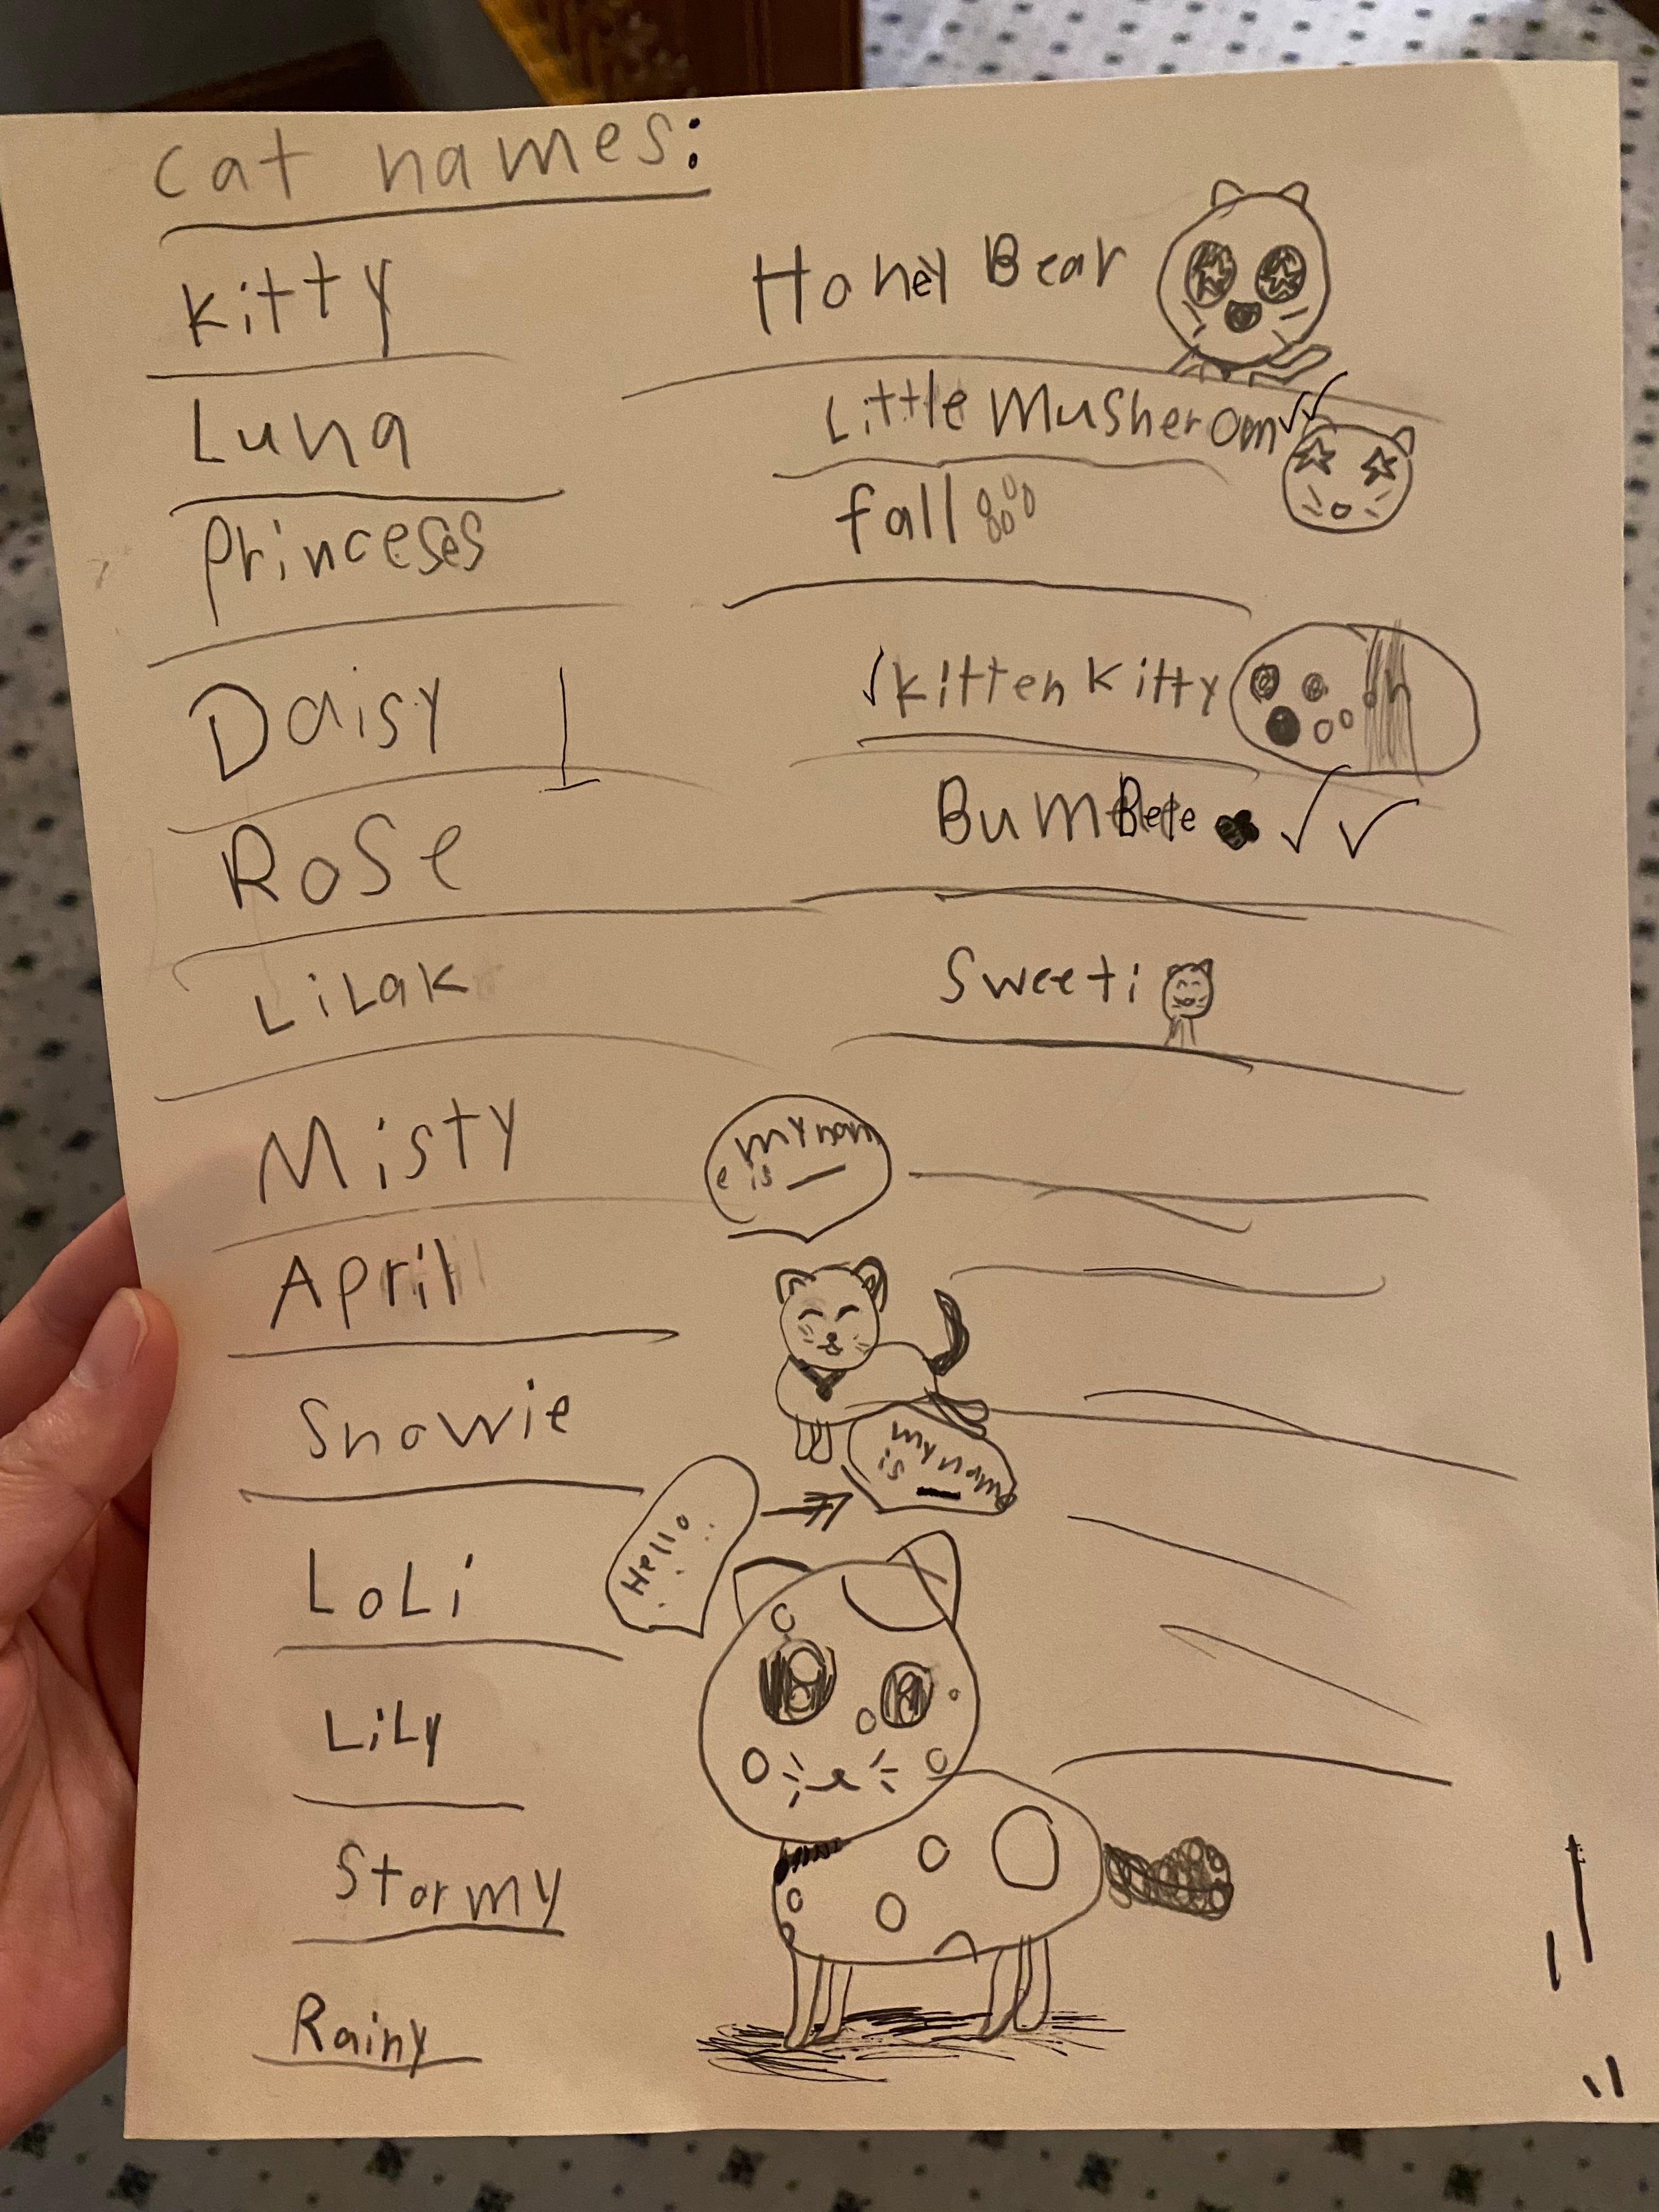 cat names:
Kitty
Luna
Princeses
Daisy
Rose
LiLak
Misty
April
Snowie
LoLi
LiLy
Stormy
Rainy
Honey Bear
Little Musherom
fall
Kitten Kitty
Sweeti
my nam
e is
my name
is
Hello